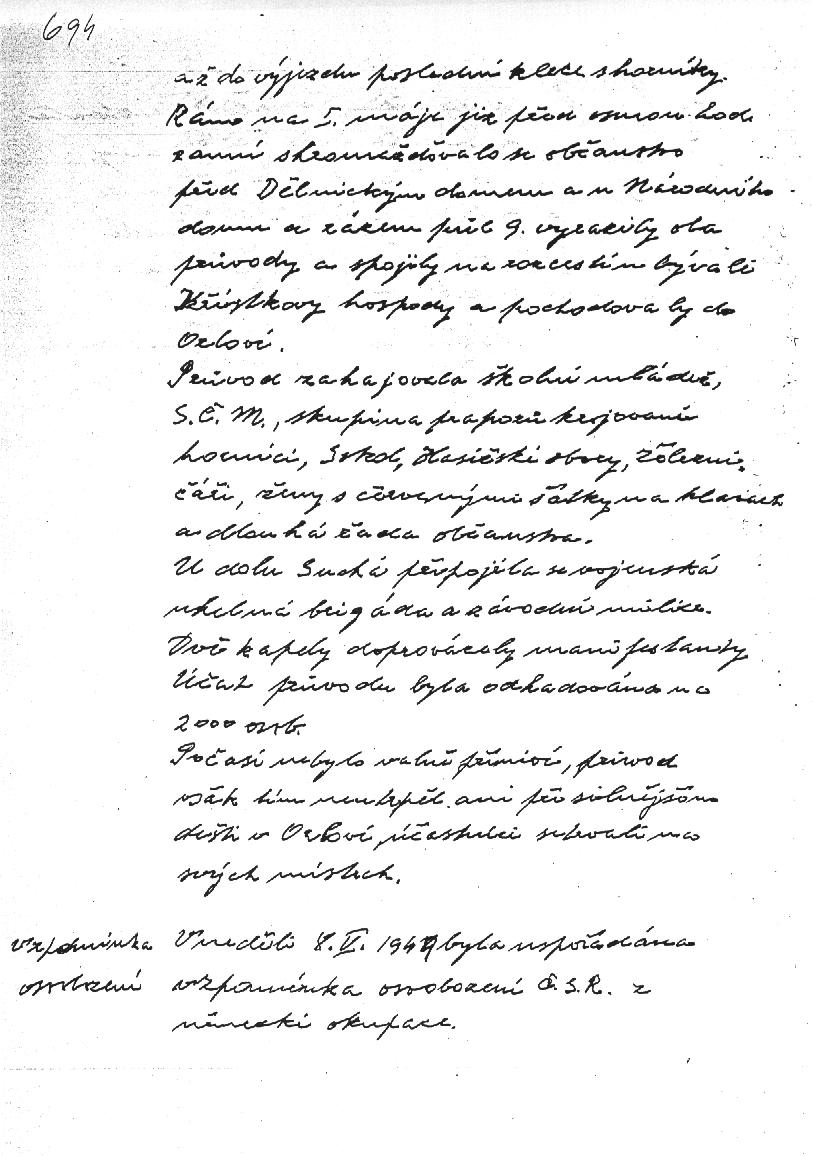 694
až do výjezdu poslední klece s horníky.
Ráno na I. máje již před osmou hod.
ranní shromažďovalo se občanstvo
před Dělnickým domem a u Národního
domu a rázem půl 9. vyrazily oba
průvody a spojily na rozcestím bývalé
Křístkovy hospody a pochodovaly do
Orlové.
Průvod zahajovala školní mládež,
S.Č.M., skupina praporů krojovaní
horníci, Sokol, Hasičské sbory, Železni-
čáři, ženy s červenými šátky na hlavách
a dlouhá řada občanstva.
U dolu Suchá připojila se vojenská
uhelná brigáda a závodní milice.
Dvě kapely doprovázely manifestanty
Účast průvodu byla odhadována na
2000 osob.
Počasí nebylo valně příznivé, průvod
však tím neutrpěl ani při silnějším
dešti v Orlové, účastníci setrvali na
svých místech.
Vzpomínka V neděli 8.V. 1949 byla uspořádána
osvobození vzpomínka osvobození Č.S.R. z
německé okupace.